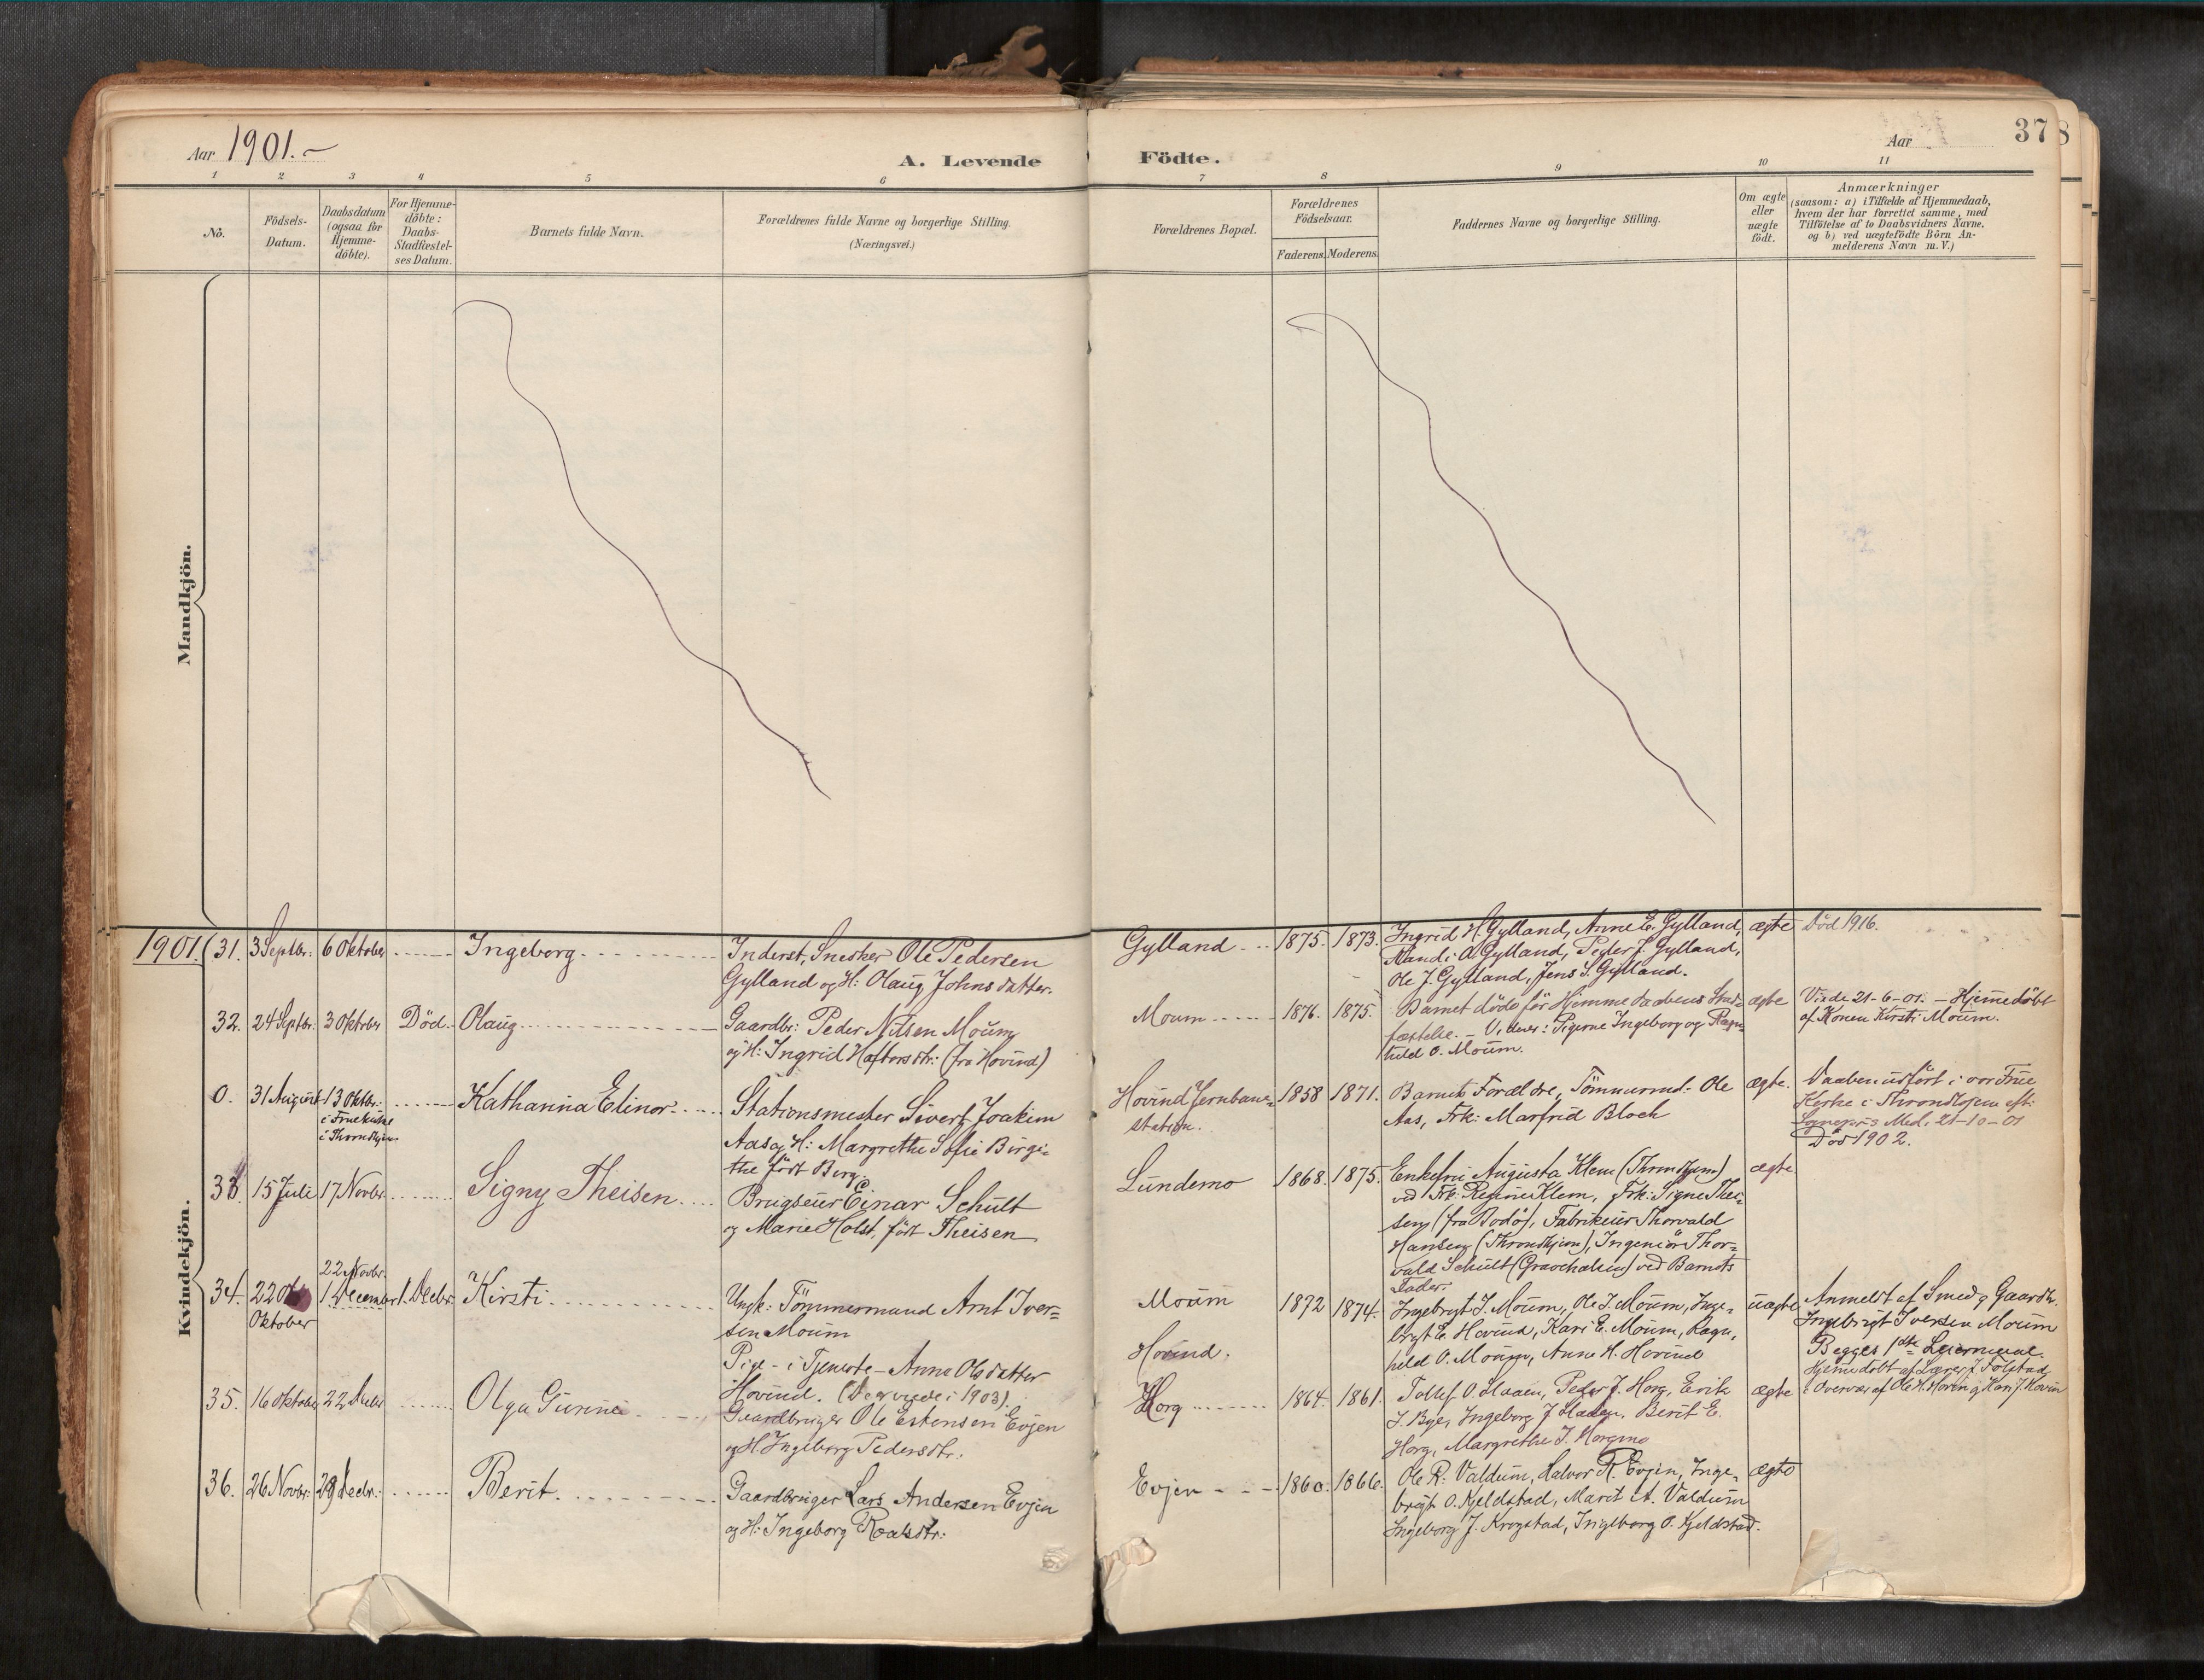 Aar 1901.
A. Levende
Födte.
Aar
37
8
1 2 3 4 5 6 7 8 9 10 11
No.
Födsels-
Datum.
Daabsdatum
(ogsaa for
Hjemme-
döbte).
For Hjemme-
döbte:
Daabs-
Stadfæstel-
ses Datum.
Barnets fulde Navn.
Forældrenes fulde Navne og borgerlige Stilling.
(Næringsvei.)
Forældrenes Bopæl.
Forældrenes
Födselsaar.
Faderens.
Moderens.
Faddernes Navne og borgerlige Stilling.
Om ægte
eller
uægte
födt.
Anmærkninger
(saasom: a) i Tilfælde af Hjemmedaab,
hvem der har forrettet samme, med
Tilföielse af to Daabsvidners Navne,
og b) ved uægtefödte Börn An-
melderens Navn m. V.)
Mandkjön.
Kvindekjön.
1901. 31. 3 Septbr. 6 Oktober Ingeborg.
Inderst, Snedker Ole Pedersen
Gylland og H: Olaug Johnsdatter.
Gylland 1875. 1873.
Ingrid H. Gylland, Anne E. Gylland,
Randi O. Gylland, Peder J. Gylland,
Ole J. Gylland, Jens S. Gylland.
ægte
Död 1916.
32. 24 Septbr. 3 Oktober Död. Olaug
Gaardbr: Peder Nilsen Moum
og H: Ingrid Haftorsdtr: (fra Hovind)
Moum 1876. 1875.
Barnet döde för Hjemmedaabens Stad-
fæstelse. - Vidner: Pigerne Ingeborg og Ragn-
hild O. Moum.
ægte
Viede 21-6-01. - Hjemmedöbt
af Konen Kirsti Moum.
0. 31 August 13 Oktbr.
i Fruekirke
i Throndhjem
Katharina Elinor
Stationsmester Sivert Joakim
Aas og H: Margrethe Sofie Birgi-
the födt Berg.
Hovind Jernbane-
station.
1858 1871.
Barnets Forældre, Tömmermd: Ole
Aas, Frk: Marfrid Bloch
ægte.
Daaben udfört i vor Frue
Kirke i Throndhjem eft:
Sognepr's Med. 21-10-01
Död 1902.
33. 15 Juli 17 Novbr. Signy Theisen
Brugseier Einar Schult
og Marie Holst, födt Theisen
Lundemo 1868. 1875.
Enkefru Augusta Klem (Throndhjem)
ved Frk: Regine Klem, Frk: Signe Thei-
sen (fra Bodö), Fabrikeier Thorvald
Hansen (Throndhjem), Ingeniör Thor-
vald Schult ved Barnets
Fader.
ægte
34. 22
Oktober
22 Novbr.
1 December 1. Decbr. Kirsti
Ungk: Tömmermand Arnt Iver-
sen Moum
Pige - i Tjeneste - Anne Olsdatter
Hovind.
Moum
Hovind.
1872 1874.
Ingebrigt I. Moum, Ole I. Moum, Inge-
brigt E. Hovind, Kari E. Moum, Ragn-
hild O. Moum, Anne H. Hovind
uægte
Anmeldt af Smed og Gaardbr.
Ingebrigt Iversen Moum
Begges 1ste Leiermaal.
Hjemmedöbt af Lærer J. Folstad
i Overvær af Ole H. Hovin og Kari J. Hovin
35. 16 Oktober 22 Decbr. Olga Gurine
Gaardbruger Ole Estensen Evjen
og H. Ingeborg Pedersdtr.
Horg 1864. 1861.
Tollef O. Haaen, Peder J. Horg, Erik
J. Bye, Ingeborg J. Haaen, Berit E.
Horg, Margrethe J. Horgmo
ægte
36. 26 Novbr. 29 Decbr. Berit.
Gaardbruger Lars Andersen Evjen
og H: Ingeborg Roaldsdtr:
Evjen 1860. 1866.
Ole R. Valdum, Halvor R. Evjen, Inge-
brigt O. Kjeldstad, Marit A. Valdum
Ingeborg J. Krogstad, Ingeborg O. Kjeldstad.
ægte